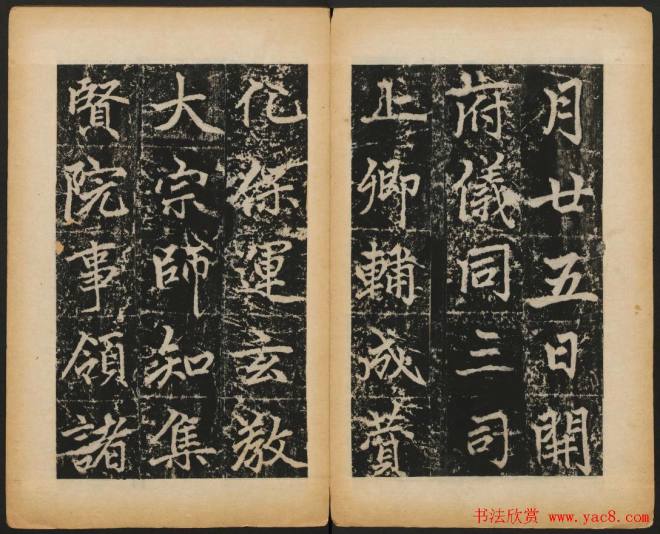 月廿五日開
府儀同三司
上卿輔成贊
化保運玄教
大宗師知集
賢院事領諸
书法欣赏
www.yac8.com